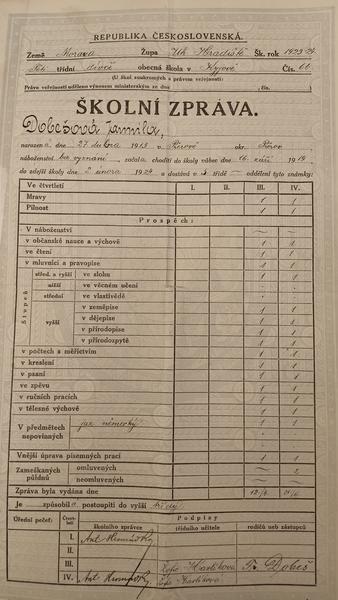 REPUBLIKA ČESKOSLOVENSKÁ.
Země Morava Župa Uh. Hradiště Šk. rok 1923-24
třídní dívčí obecná škola v Kyjově Čís. 61
(U škol soukromých s právem veřejnosti:
Právo veřejnosti uděleno výnosem ministerským ze dne čís. )
ŠKOLNÍ ZPRÁVA.
Dobešová Jarmila,
narozena dne 27 dubna 1913 v Přerově okr. Přerov
náboženství bez vyznání, začala choditi do školy vůbec dne 16. září 1919,
do zdejší školy dne 2. února 1924 a dostává v 5 třídě — oddělení tyto známky:
Ve čtvrtletí I. II. III. IV.
Mravy 1 1
Pilnost 1 1
Prospěch:
V náboženství — —
v občanské nauce a výchově 1 1
ve čtení 1 1
v mluvnici a pravopise 1 1
Stupeň
střed. a vyšší ve slohu 1 1
nižší ve věcném učení
střední ve vlastivědě
vyšší
v zeměpise 1 1
v dějepise 1 1
v přírodopise 1 1
v přírodozpytě 1 1
v počtech s měřictvím 1 1
v kreslení 1 1
v psaní 1 1
ve zpěvu 1 1
v ručních pracích 1 1
v tělesné výchově 1 1
V předmětech nepovinných
jaz. německý 1 1
Vnější úprava písemných prací 1 1
Zameškaných půldnů
omluvených — 2
neomluvených — —
Zpráva byla vydána dne
Je způsobilá postoupiti do vyšší třídy.
Úřední pečeť: Čtvrtletí Podpisy
školního správce třídního učitele rodičů neb zástupců
I.
II.
III. Žofie Havlíková Fr. Dobeš
IV. Žofie Havlíková